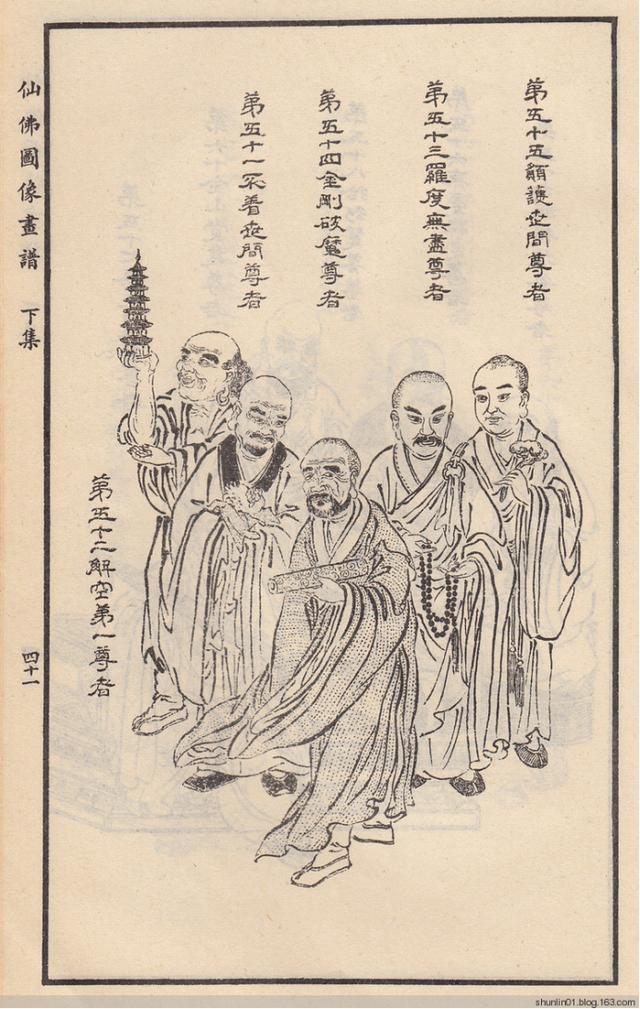 第五十五願護世間尊者
第五十三羅度無盡尊者
第五十四金剛破魔尊者
第五十一不着世間尊者
第五十二解空第一尊者
仙佛圖像畫譜 下集
四十一
shunlin01.blog.163.com